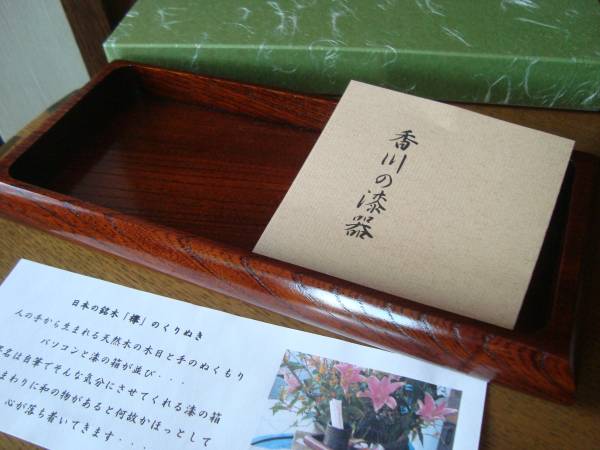 香川の漆器
日本の銘木「欅」のくりぬき
人の手から生まれる天然木の木目と手のぬくもり
パソコンと漆の箱が並び・・・
名は自筆でそんな気分にさせてくれる漆の箱
まわりに和の物があると何故かほっとして
心が落ち着いてきます・・・